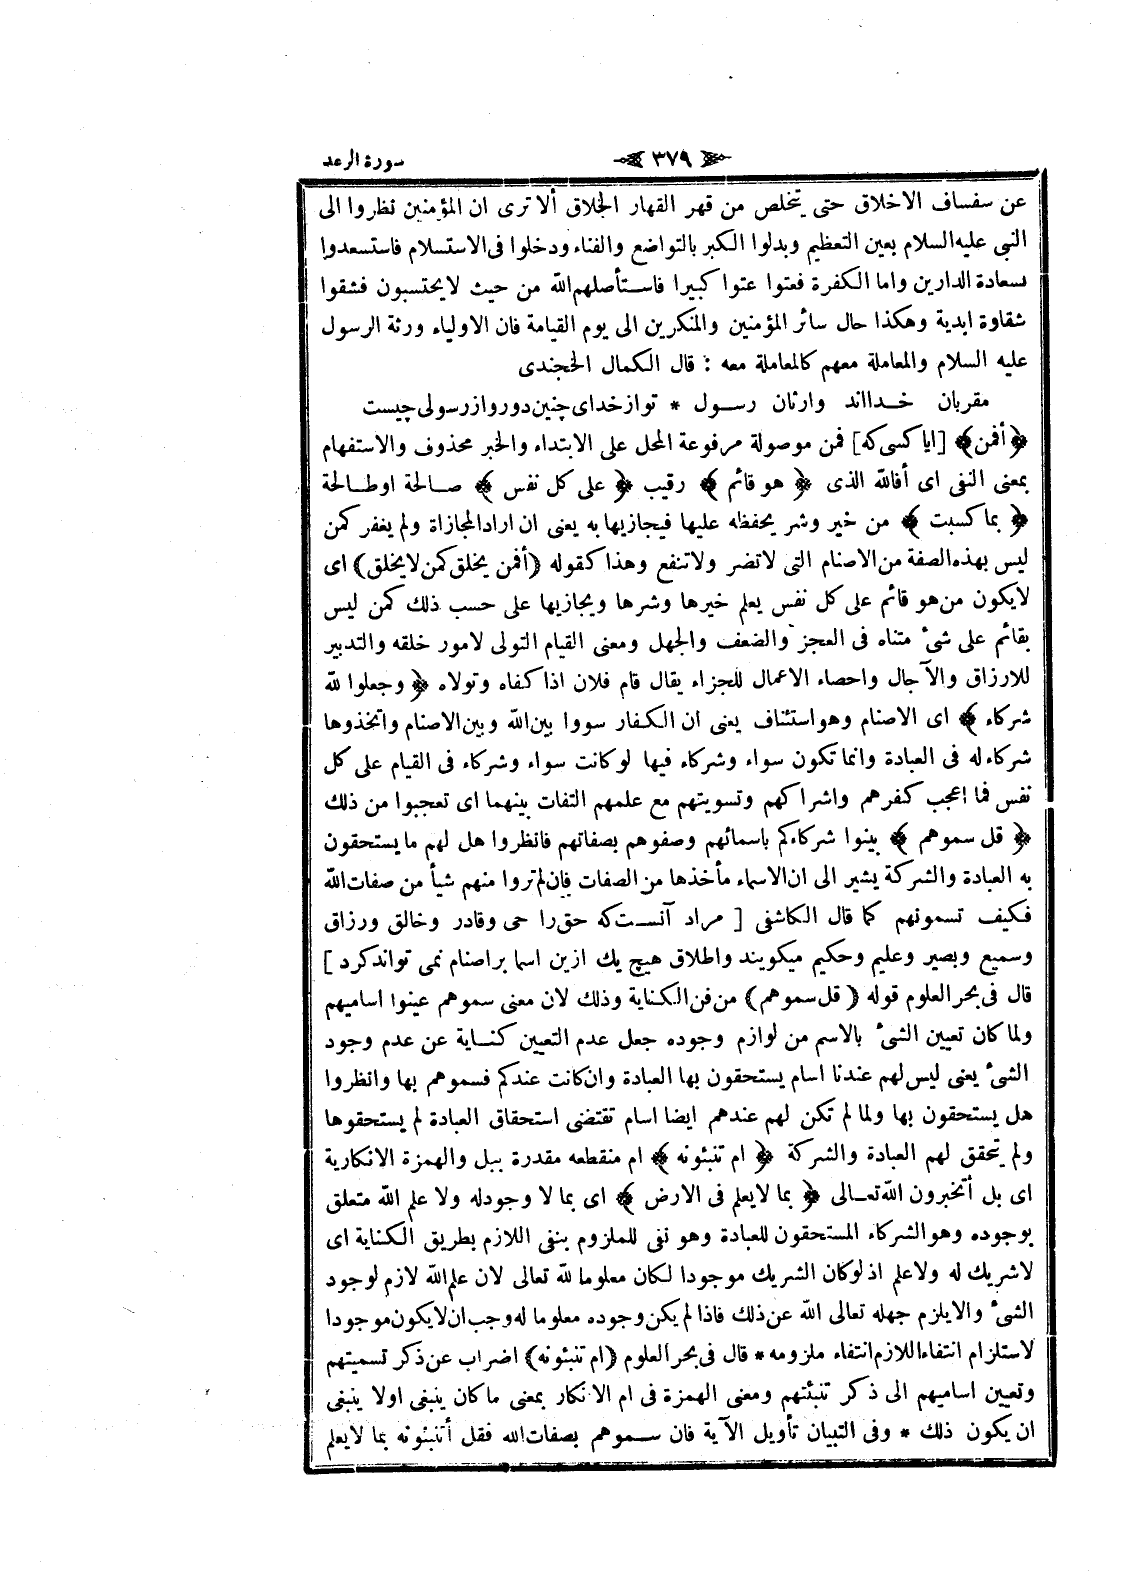 ﴿ ٣٧٩ ﴾ سورة الرعد
عن سفساف الاخلاق حتى يتخلص من قهر القهار الخلاق ألا ترى ان المؤمنين نظروا الى
النبى عليه السلام بعين التعظيم وبدلوا الكبر بالتواضع والفناء ودخلوا فى الاستسلام فاستسعدوا
بسعادة الدارين واما الكفرة فعتوا عتوا كبيرا فاستأصلهم الله من حيث لا يحتسبون فشقوا
شقاوة ابدية وهكذا حال سائر المؤمنين والمنكرين الى يوم القيامة فان الاولياء ورثة الرسول
عليه السلام والمعاملة معهم كالمعاملة معه : قال الكمال الخجندى
مقربان خدااند وارثان رسول * تواز خداى چنين دور واز رسولى چيست
﴿ أفمن ﴾ [ ايا كسى كه ] فمن موصولة مرفوعة المحل على الابتداء والخبر محذوف والاستفهام
بمعنى النفى اى أفالله الذى ﴿ هو قائم ﴾ رقيب ﴿ على كل نفس ﴾ صالحة او طالحة
﴿ بما كسبت ﴾ من خير وشر يحفظه عليها فيجازيها به يعنى ان اراد المجازاة ولم يغفر كمن
ليس بهذه الصفة من الاصنام التى لا تضر ولا تنفع وهذا كقوله ( أفمن يخلق كمن لا يخلق ) اى
لا يكون من هو قائم على كل نفس يعلم خيرها وشرها ويجازيها على حسب ذلك كمن ليس
بقائم على شئ متناه فى العجز والضعف والجهل ومعنى القيام التولى لامور خلقه والتدبير
للارزاق والآجال واحصاء الاعمال للجزاء يقال قام فلان اذا كفاه وتولاه ﴿ وجعلوا لله
شركاء ﴾ اى الاصنام وهو استئناف يعنى ان الكفار سووا بين الله وبين الاصنام واتخذوها
شركاء له فى العبادة وانما تكون سواء وشركاء فيها لو كانت سواء وشركاء فى القيام على كل
نفس فما اعجب كفرهم واشراكهم وتسويتهم مع علمهم التفات بينهما اى تعجبوا من ذلك
﴿ قل سموهم ﴾ بينوا شركاءكم باسمائهم وصفوهم بصفاتهم فانظروا هل لهم ما يستحقون
به العبادة والشركة يشير الى ان الاسماء مأخذها من الصفات فان لم تروا منهم شيأ من صفات الله
فكيف تسمونهم كما قال الكاشفى [ مراد آنست كه حق را حى وقادر وخالق ورزاق
وسميع وبصير وعليم وحكيم ميكويند واطلاق هيچ يك ازين اسما بر اصنام نمى تواند كرد ]
قال فى بحر العلوم قوله ( قل سموهم ) من فن الكناية وذلك لان معنى سموهم عينوا اساميهم
ولما كان تعيين الشئ بالاسم من لوازم وجوده جعل عدم التعيين كناية عن عدم وجود
الشئ يعنى ليس لهم عندنا اسام يستحقون بها العبادة وان كانت عندكم فسموهم بها وانظروا
هل يستحقون بها ولما لم تكن لهم عندهم ايضا اسام تقتضى استحقاق العبادة لم يستحقوها
ولم يتحقق لهم العبادة والشركة ﴿ ام تنبئونه ﴾ ام منقطعه مقدرة ببل والهمزة الانكارية
اى بل أتخبرون الله تعالى ﴿ بما لا يعلم فى الارض ﴾ اى بما لا وجود له ولا علم الله متعلق
بوجوده وهو الشركاء المستحقون للعبادة وهو نفى للملزوم بنفى اللازم بطريق الكناية اى
لا شريك له ولا علم اذ لو كان الشريك موجودا لكان معلوما لله تعالى لان علم الله لازم لوجود
الشئ والا يلزم جهله تعالى الله عن ذلك فاذا لم يكن وجوده معلوما له وجب ان لا يكون موجودا
لاستلزام انتفاء اللازم انتفاء ملزومه * قال فى بحر العلوم ( ام تنبئونه ) اضراب عن ذكر تسميتهم
وتعيين اساميهم الى ذكر تنبئتهم ومعنى الهمزة فى ام الانكار بمعنى ما كان ينبغى او لا ينبغى
ان يكون ذلك * وفى التبيان تأويل الآية فان سموهم بصفات الله فقل أتنبئونه بما لا يعلم